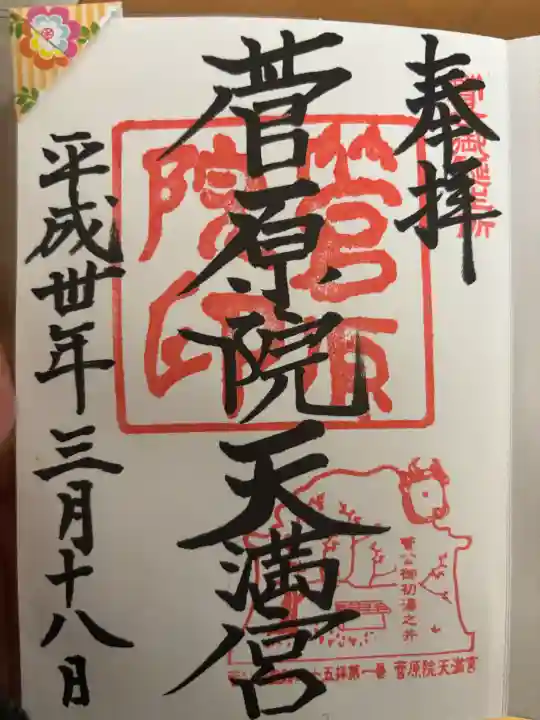 奉拝
菅原院天満宮
平成卅年三月十八日
菅原院印
菅公御初湯之井
五拝第一番 菅原院天満宮